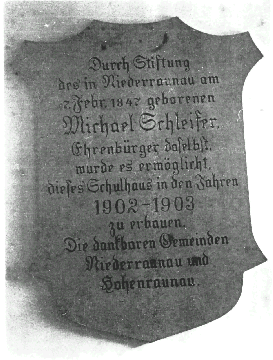 Durch Stiftung
des in Niederraunau am
7. Febr. 1847 geborenen
Michael Schleifer,
Ehrenbürger daselbst,
wurde es ermöglicht
dieses Schulhaus in den Jahren
1902-1903
zu erbauen.
Die dankbaren Gemeinden
Niederraunau und
Hohenraunau.